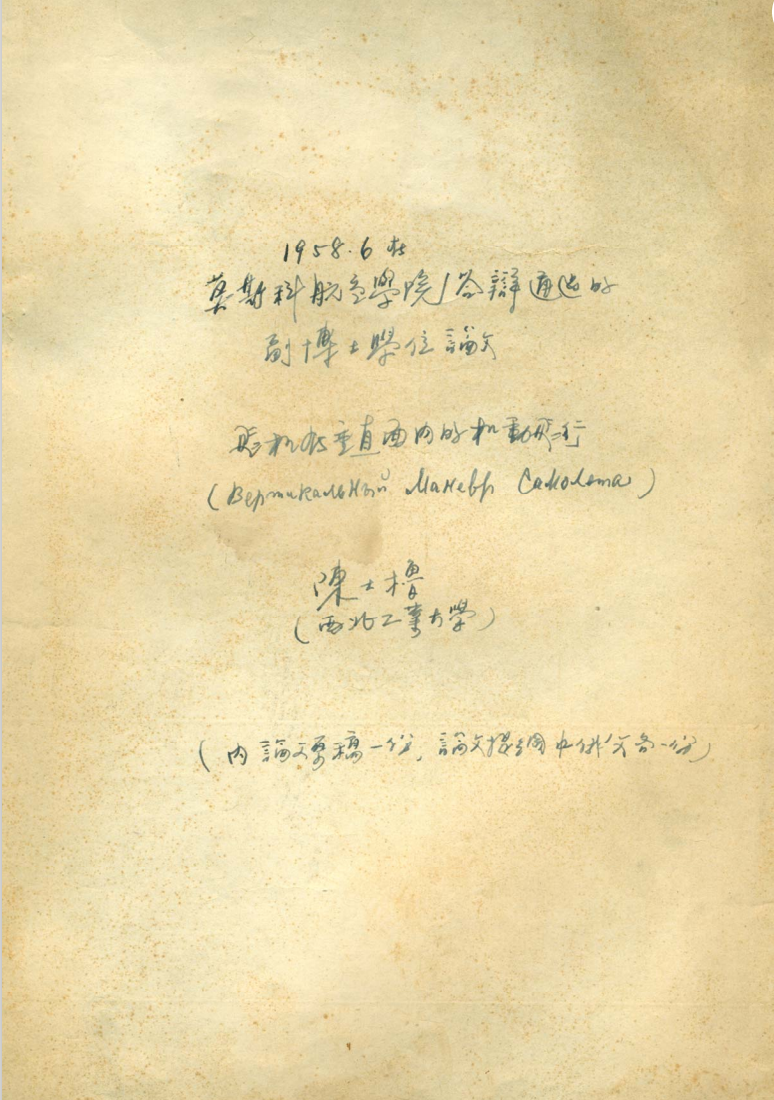 1958.6 在
莫斯科航空學院答辯通过的
副博士學位論文
飛机在垂直面内的机動飛行
(Вертикальный Маневр Самолета)
陳士櫓
(西北工業大學)
(内論文原稿一份,論文提綱中俄文各一份)